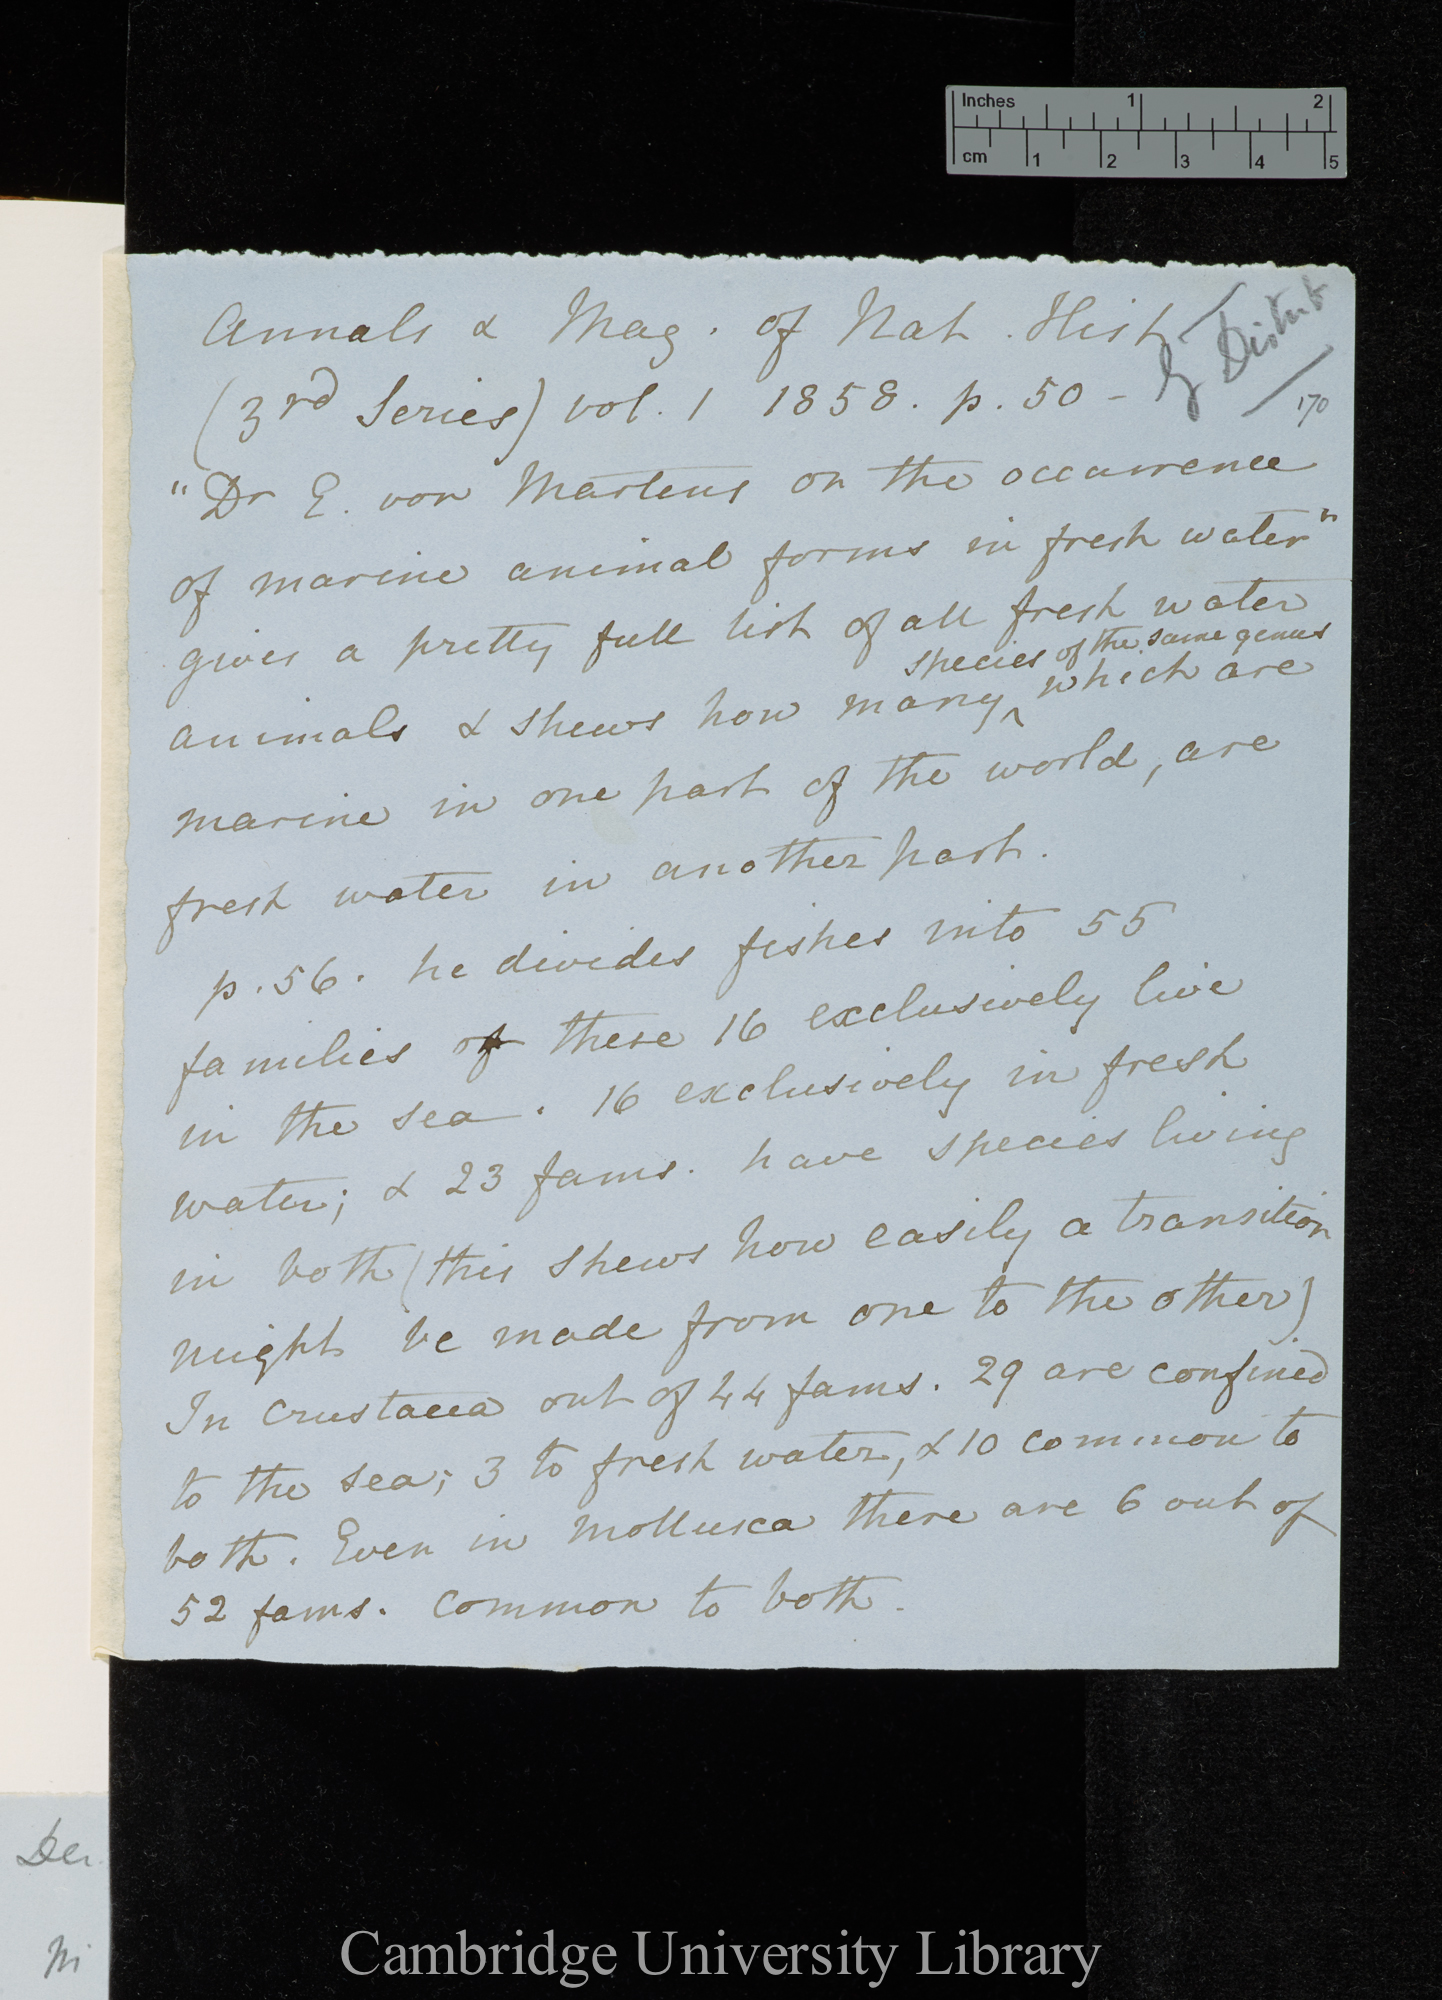 Inches 1 2
cm 1 2 3 4 5
G Distrib
170
Annals & Mag. of Nat. Hist
(3rd Series) vol. 1 1858. p. 50 -
"Dr E. von Martens on the occurrence
of marine animal forms in fresh water"
gives a pretty full list of all fresh water
species of the same genus
animals & shews how many ^ which are
marine in one part of the world, are
fresh water in another part.
p. 56. he divides fishes into 55
families of these 16 exclusively live
in the sea. 16 exclusively in fresh
water; & 23 fams. have species living
in both (this shews how easily a transition
might be made from one to the other)
In Crustacea out of 44 fams. 29 are confined
to the sea; 3 to fresh water, & 10 common to
both. Even in Mollusca there are 6 out of
52 fams. common to both.
Cambridge University Library